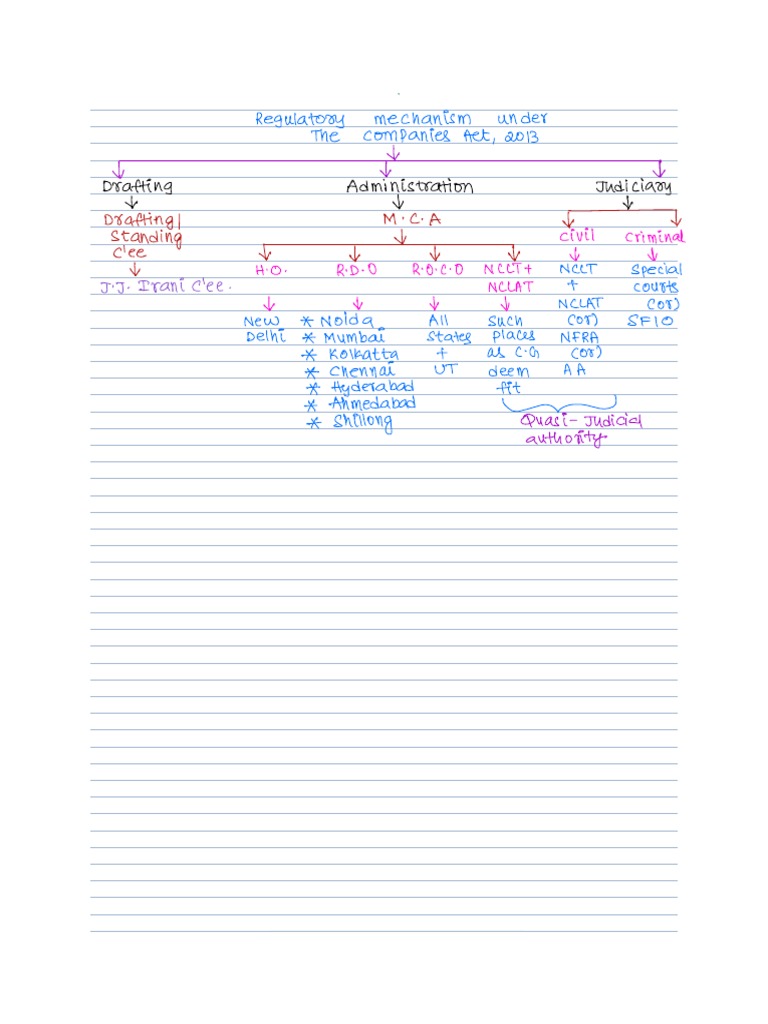 Regulatory mechanism under
The Companies Act, 2013
Drafting Administration Judiciary
Drafting| M.C.A
Standing Civil Criminal
C'ee
H.O. R.D.O R.O.C.O NCLT+ NCLT Special
J.J. Irani C'ee. NCLAT + courts
NCLAT (or)
New * Noida All Such (or) SFIO
Delhi * Mumbai States places NFRA
* Kolkatta + as C.G (or)
* Chennai UT deem AA
* Hyderabad fit
* Ahmedabad
* Shillong Quasi-Judicial
authority